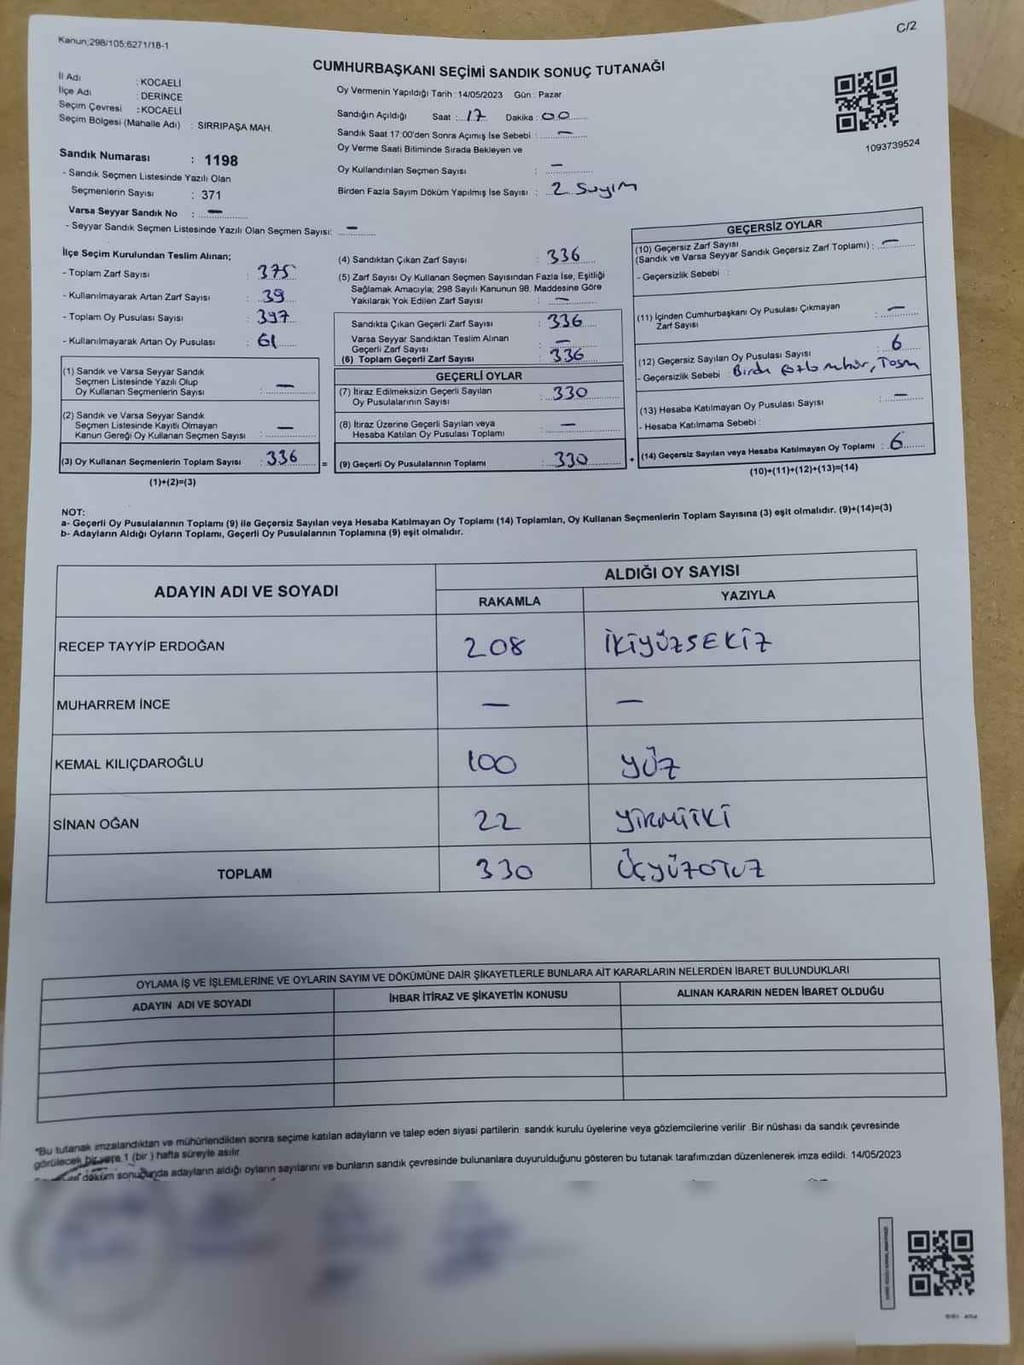 Kanun;298/105;6271/18-1
C/2
CUMHURBAŞKANI SEÇİMİ SANDIK SONUÇ TUTANAĞI
İl Adı : KOCAELİ
İlçe Adı : DERİNCE
Seçim Çevresi : KOCAELİ
Seçim Bölgesi (Mahalle Adı) : SIRRIPAŞA MAH.
Oy Vermenin Yapıldığı Tarih : 14/05/2023 Gün : Pazar
Sandığın Açıldığı Saat : 17 Dakika : 00
Sandık Saat 17:00'den Sonra Açımış İse Sebebi : —
Oy Verme Saati Bitiminde Sırada Bekleyen ve
Oy Kullandırılan Seçmen Sayısı : —
Birden Fazla Sayım Döküm Yapılmış İse Sayısı : 2 Sayım
1093739524
Sandık Numarası : 1198
- Sandık Seçmen Listesinde Yazılı Olan
Seçmenlerin Sayısı : 371
Varsa Seyyar Sandık No : —
- Seyyar Sandık Seçmen Listesinde Yazılı Olan Seçmen Sayısı: —
İlçe Seçim Kurulundan Teslim Alınan;
- Toplam Zarf Sayısı : 375
- Kullanılmayarak Artan Zarf Sayısı : 39
- Toplam Oy Pusulası Sayısı : 397
- Kullanılmayarak Artan Oy Pusulası : 61
(1) Sandık ve Varsa Seyyar Sandık
Seçmen Listesinde Yazılı Olup
Oy Kullanan Seçmenlerin Sayısı : —
(2) Sandık ve Varsa Seyyar Sandık
Seçmen Listesinde Kayıtlı Olmayan
Kanun Gereği Oy Kullanan Seçmen Sayısı : —
(3) Oy Kullanan Seçmenlerin Toplam Sayısı : 336
(1)+(2)=(3)
(4) Sandıktan Çıkan Zarf Sayısı : 336
(5) Zarf Sayısı Oy Kullanan Seçmen Sayısından Fazla İse, Eşitliği
Sağlamak Amacıyla; 298 Sayılı Kanunun 98. Maddesine Göre
Yakılarak Yok Edilen Zarf Sayısı : —
Sandıkta Çıkan Geçerli Zarf Sayısı : 336
Varsa Seyyar Sandıktan Teslim Alınan
Geçerli Zarf Sayısı : —
(6) Toplam Geçerli Zarf Sayısı : 336
GEÇERLİ OYLAR
(7) İtiraz Edilmeksizin Geçerli Sayılan
Oy Pusulalarının Sayısı : 330
(8) İtiraz Üzerine Geçerli Sayılan veya
Hesaba Katılan Oy Pusulası Toplamı : —
= (9) Geçerli Oy Pusulalarının Toplamı : 330
GEÇERSİZ OYLAR
(10) Geçersiz Zarf Sayısı
(Sandık ve Varsa Seyyar Sandık Geçersiz Zarf Toplamı) : —
- Geçersizlik Sebebi :
(11) İçinden Cumhurbaşkanı Oy Pusulası Çıkmayan
Zarf Sayısı : —
(12) Geçersiz Sayılan Oy Pusulası Sayısı : 6
- Geçersizlik Sebebi Birden fazla mühür,
(13) Hesaba Katılmayan Oy Pusulası Sayısı : —
- Hesaba Katılmama Sebebi :
+ (14) Geçersiz Sayılan veya Hesaba Katılmayan Oy Toplamı : 6
(10)+(11)+(12)+(13)=(14)
NOT:
a- Geçerli Oy Pusulalarının Toplamı (9) ile Geçersiz Sayılan veya Hesaba Katılmayan Oy Toplamı (14) Toplamları, Oy Kullanan Seçmenlerin Toplam Sayısına (3) eşit olmalıdır. (9)+(14)=(3)
b- Adayların Aldığı Oyların Toplamı, Geçerli Oy Pusulalarının Toplamına (9) eşit olmalıdır.
ADAYIN ADI VE SOYADI ALDIĞI OY SAYISI
RAKAMLA YAZIYLA
RECEP TAYYİP ERDOĞAN 208 İKİYÜZSEKİZ
MUHARREM İNCE — —
KEMAL KILIÇDAROĞLU 100 YÜZ
SİNAN OĞAN 22 YİRMİİKİ
TOPLAM 330 ÜÇYÜZOTUZ
OYLAMA İŞ VE İŞLEMLERİNE VE OYLARIN SAYIM VE DÖKÜMÜNE DAİR ŞİKAYETLERLE BUNLARA AİT KARARLARIN NELERDEN İBARET BULUNDUKLARI
ADAYIN ADI VE SOYADI İHBAR İTİRAZ VE ŞİKAYETİN KONUSU ALINAN KARARIN NEDEN İBARET OLDUĞU
*Bu tutanak imzalandıktan ve mühürlendikten sonra seçime katılan adayların ve talep eden siyasi partilerin sandık kurulu üyelerine veya gözlemcilerine verilir. Bir nüshası da sandık çevresinde
görülecek bir yere 1 (bir) hafta süreyle asılır.
döküm sonuçunda adayların aldığı oyların sayılarını ve bunların sandık çevresinde bulunanlara duyurulduğunu gösteren bu tutanak tarafımızdan düzenlenerek imza edildi. 14/05/2023